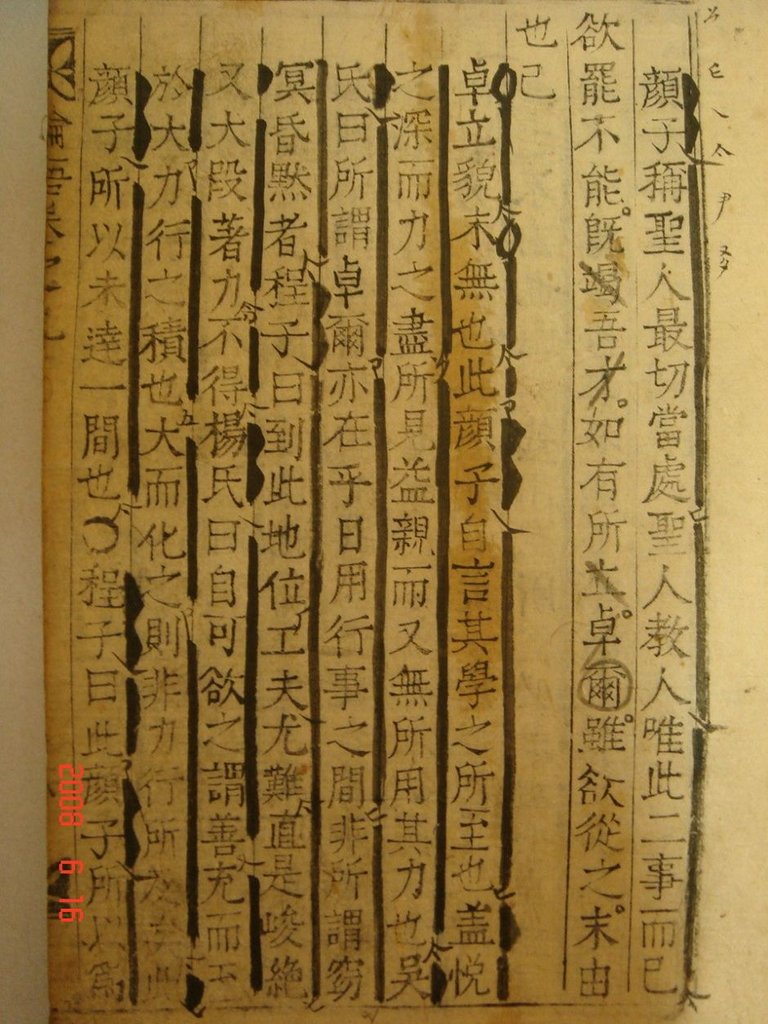 顔子稱聖人最切當處聖人教人唯此二事而已
欲罷不能旣竭吾才如有所立卓爾雖欲從之末由
也已
卓立貌末無也此顔子自言其學之所至也盖悅
之深而力之盡所見益親而又無所用其力也吳
氏曰所謂卓爾亦在乎日用行事之間非所謂窈
冥昏黙者程子曰到此地位工夫尤難直是峻絶
又大段著力不得楊氏曰自可欲之謂善充而至
於大力行之積也大而化之則非力行所及矣此
顔子所以未達一間也〇程子曰此顔子所以爲
論語
2008 6 16